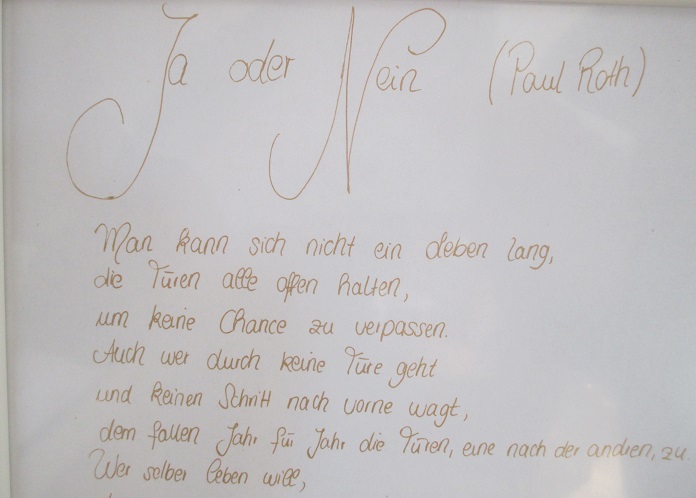 Ja oder Nein (Paul Roth)
Man kann sich nicht ein Leben lang,
die Türen alle offen halten,
um keine Chance zu verpassen.
Auch wer durch keine Türe geht
und keinen Schritt nach vorne wagt,
dem fallen Jahr für Jahr die Türen, eine nach der andren, zu.
Wer selber leben will,